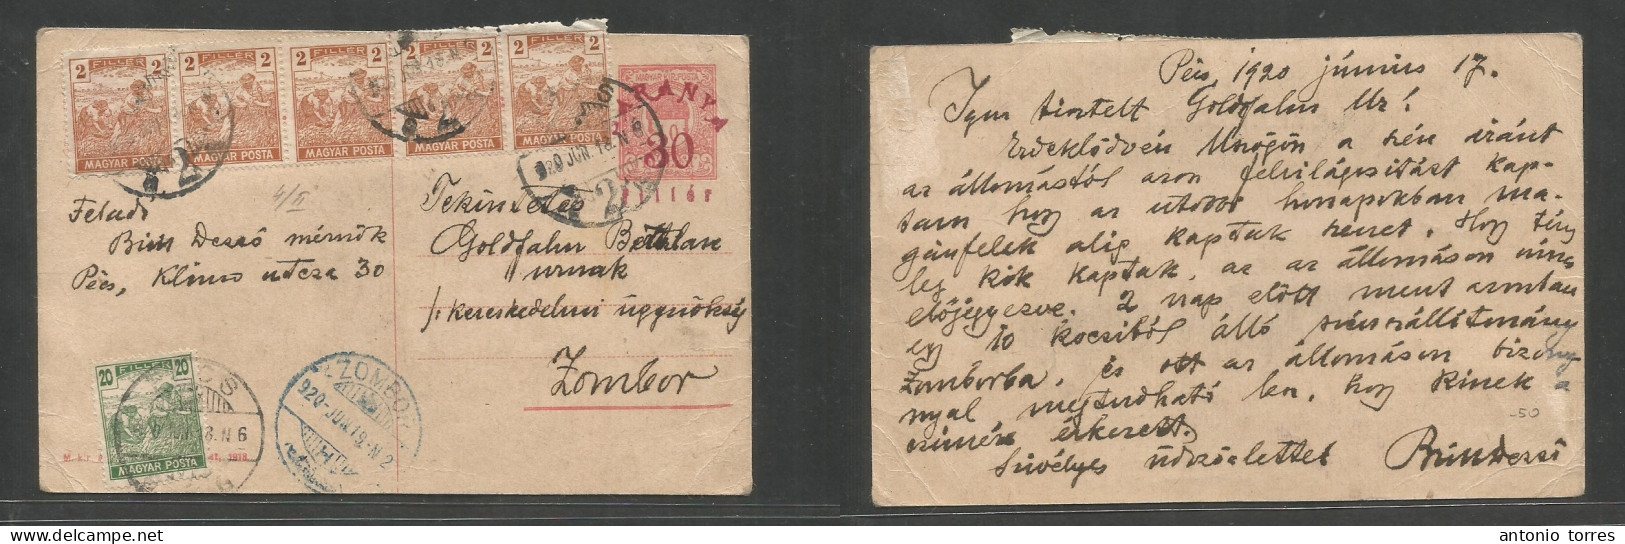 2 FILLÉR 2
MAGYAR POSTA
2 FILLÉR 2
MAGYAR POSTA
2 FILLÉR 2
MAGYAR POSTA
2 FILLÉR 2
MAGYAR POSTA
2 FILLÉR 2
MAGYAR POSTA
MAGYAR KIR. POSTA
BARANYA
30
fillér
920 JUN. 18. N. 6
4/II
Feladó
Biró Dezső mérnök
Pécs, Klimo utcza 30
Tekintetes
Goldfahn
urnak
kereskedelmi ügynökség
Zombor
20 FILLÉR 20
MAGYAR POSTA
ZOMBOR
920 JUN. 19. N. 2
1918
Pécs, 1920 június 17.
Igen tisztelt Goldfahn Ur!
Érdeklődvén a szén iránt
az állomástól azon felvilágositást kap-
tam hogy az utóbbi honapokban ma-
gánfelek alig kaptak szenet. Hogy tény
leg kik kaptak, az az állomáson nincs
előjegyezve. 2 nap előtt ment azonban
egy 10 kocsiból álló szénszállitmány
Zomborba, és ott az állomáson bizony
nyal megtudható lesz, hogy kinek a
cimére érkezett.
-50
Szivélyes üdvözlettel Biró Dezső
antonio torres